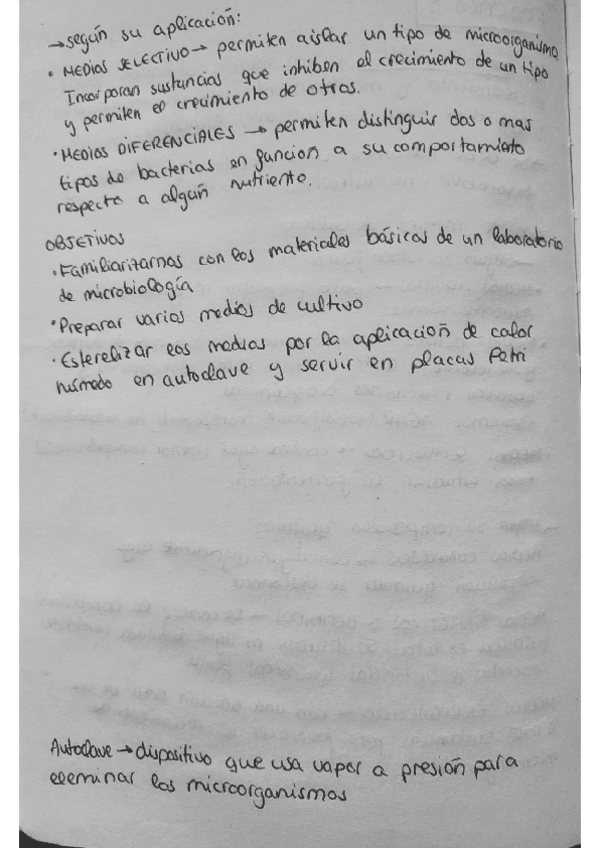 → según su aplicación:
• MEDIOS SELECTIVO → permiten aislar un tipo de microorganismo
Incorporan sustancias que inhiben el crecimiento de un tipo
y permiten el crecimiento de otros.
• MEDIOS DIFERENCIALES → permiten distinguir dos o mas
tipos de bacterias en funcion a su comportamiento
respecto a algún nutriente.
OBJETIVOS
• Familiarizarnos con los materiales básicos de un laboratorio
de microbiología
• Preparar varios medios de cultivo
• Esterelizar los medios por la aplicación de calor
húmedo en autoclave y servir en placas Petri
Autoclave → dispositivo que usa vapor a presión para
eleminar los microorganismos